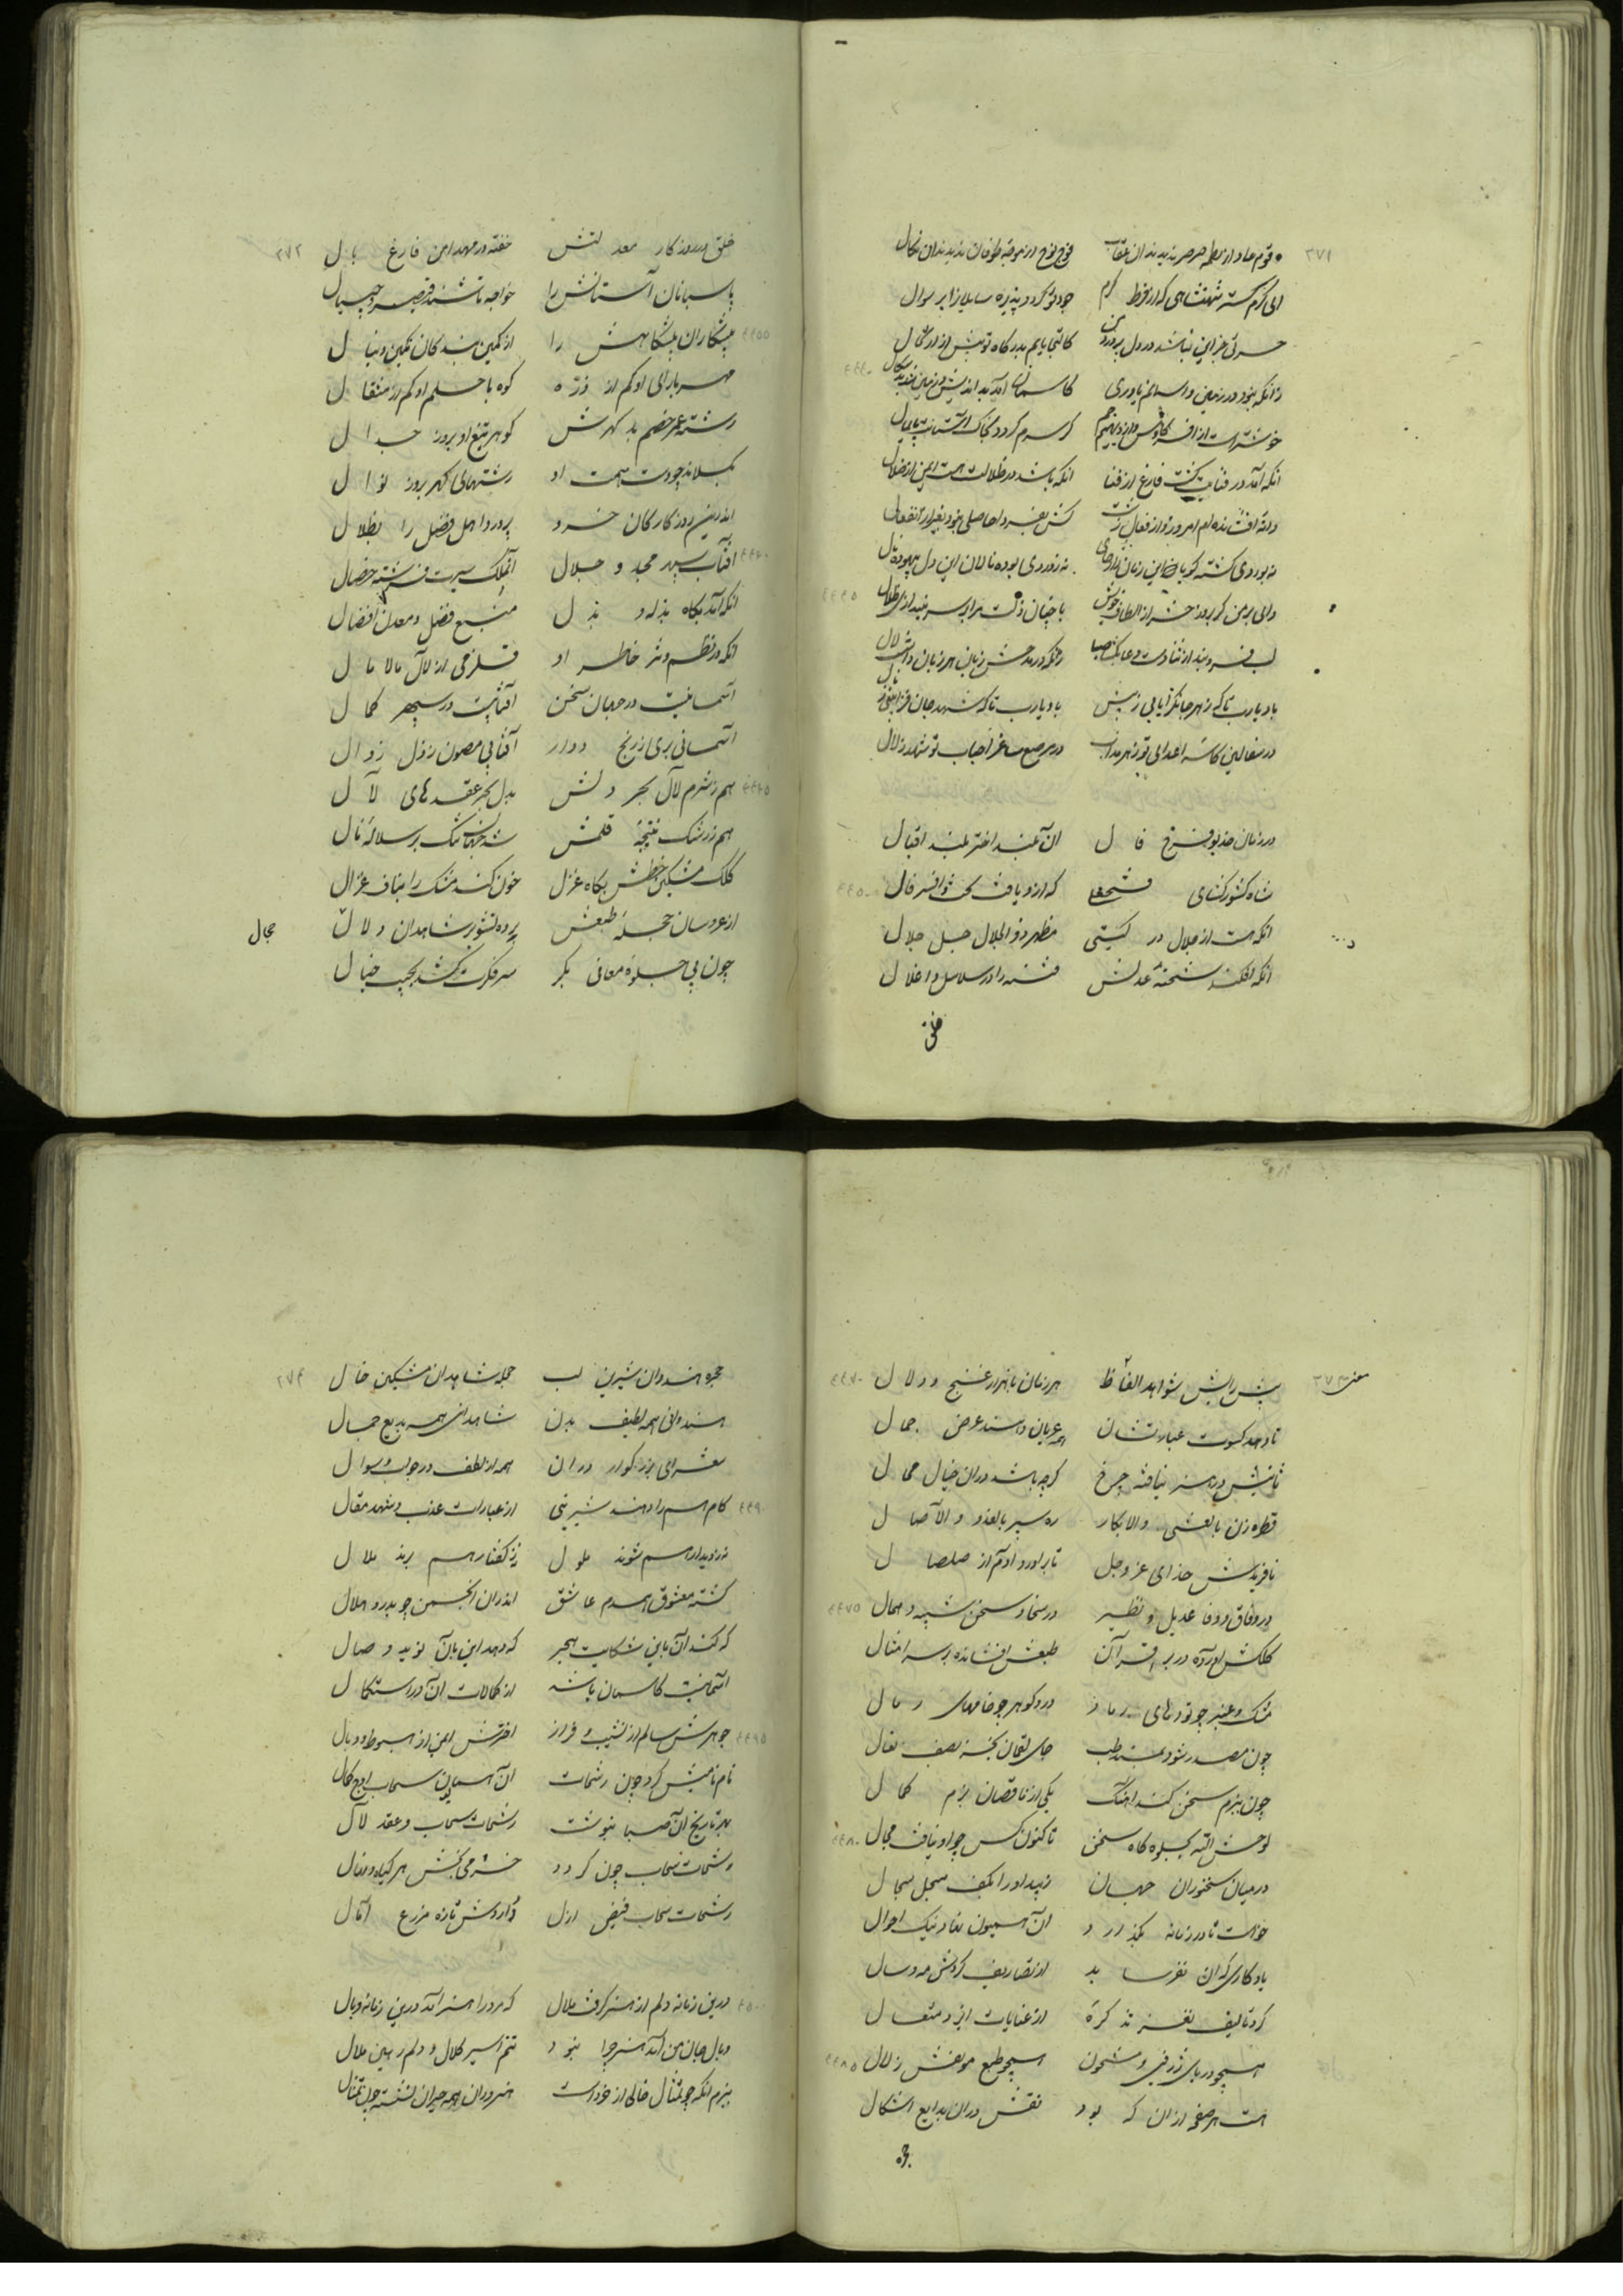 ۳۷۱
قوم عاد از لطمه صرصر ندیدند آن عقاب فوج نوح از موجهٔ طوفان ندیدند آن نکال
ای کرم گستر شهنشاهی که از فرط کرم جود تو گردد پذیره سایلانرا بر سوال
حسرتی جز این نباشد در دل پر درد من کالتجا یابم بدرگاه تو بیش از ارتحال
زانکه نبود در زمین و آسمانم یاوری کاسمان آمد بداندیش و زمین
خوشتر است از افسر کاوس و از دیهیم جم گر سرم گردد بخاک آستانت پایمال
آنکه آمد در فنایت گشت فارغ از فنا آنکه باشد در ظلالت هست ایمن از ضلال
وای بر من گر بروز حشر از الطاف خویش
لب فرو بند از ثنا دست دعا بگشا صبا
باد یارب تا که زهر جانگزا یابی ز نیش باد یارب تا که شهد جان فزا
در سفالین کاسهٔ اعدای تو زهر مذاب در مرصع ساغر احباب تو شهد زلال
در زمان خدیو فرخ فال آن بلند اختر بلند اقبال
شاه کشورگشای فتحعلی که ازو یافت بخت و افسر فال
آنکه هست از جلال در گیتی مظهر ذوالجلال جل جلال
آنکه افکند شحنهٔ عدلش فتنه را در سلاسل و اغلال
خلق
۳۷۲
خلق در روزگار معدلتش خفته در مهد امن فارغ بال
پاسبانان آستانش را خواجه تاشند قیصر و چیپال
پیشکاران پیشگاهش را از کمین بندگان تکین و ینال
مهر با رای او کم از ذره کوه با حلم او کم از مثقال
رشته عمر خصم بد گهرش گوهر تیغ او بروز جدال
بگسلاند چو دست همت او رشتهای گهر بروز نوال
اندرین روزگار کان خسرو پرورد اهل فضل را بظلال
آفتاب سپهر مجد و جلال آن ملک سیرت فرشته خصال
آنکه آمد بگاه بذله و بذل منبع فضل و معدن افضال
آنکه در نظم و نثر خاطر او قلزمی از لآل مالامال
آسمانیست در جهان سخن آفتابیست در سپهر کمال
آسمانی بری ز رنج دوار آفتابی مصون ز ذل زوال
هم ز شرم لآل بحر دلش بدل بحر عقدهای لآل
هم ز رشک نتیجهٔ قلمش
کلک مشکین خطش بگاه غزل خون کند مشک را بناف غزال
از عروسان حجلهٔ طبعش پرده نشور شاهدان دلال
چون پی جلوهٔ معانی بکر سر فکرت کشد بجیب خیال
۳۷۳
پیش رایش شواهد الفاظ هر زمان با هزار غنج و دلال
تا دهد کسوت عبارتشان همه عریان دهند عرض جمال
ثانیش در هنر نیافته چرخ گرچه باشد در آن خیال محال
قطره زن بالعشی والابکار ره سپر بالغدو والآصال
نافریدش خدای عز و جل تا برآورد آدم از صلصال
در وفاق و وفا عدیل و نظیر در سخا و سخن شبیه و همال
کلکش آورده در بر اقران طبعش افشانده بر سر امثال
مشک و عنبر چو تودهای رماد در و گوهر چو خامهای رمال
چون مصدر شود بمسند طب جای لقمان بجز بصف نعال
چون ببزم سخن کند آهنگ یکی از ناقصان بزم کمال
لوحش الله بجلوه گاه سخن تا کنون کس چو او نیافت مجال
در میان سخنوران جهان زیبد او را بکف سجل سجال
خواست تا در زمانه بگذارد آن همیون نهاد نیک احوال
یادگاری که آن نفرساید از تصاریف گردش مه و سال
کرد تألیف نغز تذکرهٔ از عنایات ایزد متعال
همچو دریای ژرف و مشحون همچو طبع مولفش ز لآل
هست هر صفحه از آن که بود نقش در آن بدایع اشکال
۳۷۴
حجره هندوان شیرین لب حجله شاهدان مشکین خال
هندوانی همه لطیف بدن شاهدانی همه بدیع جمال
شعرای بزرگوار در آن همه از لطف در جواب و سوال
کام هم را دهند شیرینی از عبارات عذب و شهد مقال
نه ز دیدار هم شوند ملول نه ز گفتار هم برند ملال
گشته معشوق همدم عاشق اندران انجمن چو بدر و هلال
که کند آن باین شکایت هجر که دهد این بآن نوید وصال
آسمانیست کاسمان باشد از کمالات آن در استکمال
جوهرش سالم از نشیب و فراز اخترش ایمن از هبوط و وبال
نام نامیش کرد چون رشحات آن همیون سحاب اوج کمال
بهر تاریخ آن صبا بنوشت رشحات سحاب و عقد لآل
رشحات سحاب چون گردد خرمی بخش هر گیاه و نهال
رشحات سحاب فیض ازل داردش تازه مزرع آمال
درین زمانه دلم از هنر گرفت ملال که مرد را هنر آمد درین زمانه وبال
وبال جان من آمد هنر چرا نبود تنم اسیر کلال و دلم رهین ملال
ببزم آنکه چو تمثال خالی از خرد است هنروران همه حیران نشسته چون تمثال